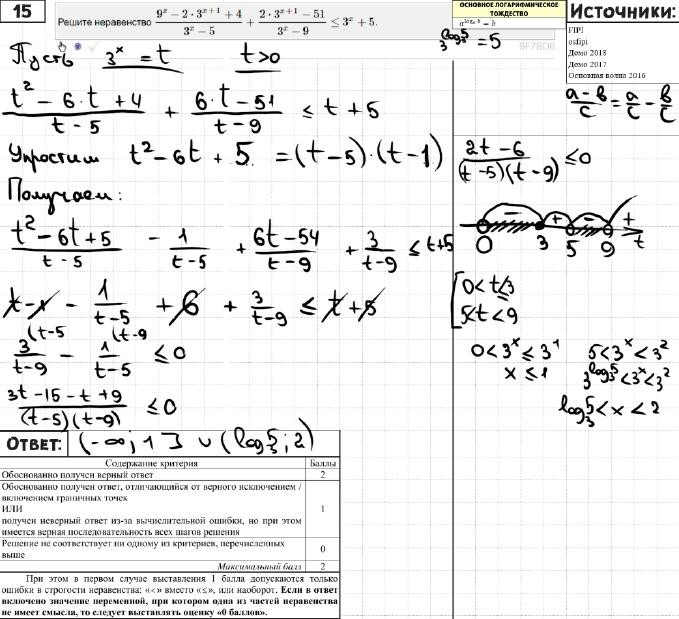 15
Решите неравенство (9^x − 2·3^(x+1) + 4)/(3^x − 5) + (2·3^(x+1) − 51)/(3^x − 9) ≤ 3^x + 5.
ОСНОВНОЕ ЛОГАРИФМИЧЕСКОЕ
ТОЖДЕСТВО
a^(log_a b) = b
3^(log_3 5) = 5
9F7BD6
Источники:
FIPI
osfipi
Демо 2018
Демо 2017
Основная волна 2016
(a − b)/c = a/c − b/c
Пусть 3^x = t t>0
(t² − 6·t + 4)/(t − 5) + (6·t − 51)/(t − 9) ≤ t + 5
Упростим t² − 6t + 5 = (t − 5)·(t − 1)
Получаем:
(t² − 6t + 5)/(t − 5) − 1/(t − 5) + (6t − 54)/(t − 9) + 3/(t − 9) ≤ t + 5
t − 1 − 1/(t − 5) + 6 + 3/(t − 9) ≤ t + 5
(t−5 (t−9
3/(t − 9) − 1/(t − 5) ≤ 0
(3t − 15 − t + 9)/((t − 5)(t − 9)) ≤ 0
(2t − 6)/((t − 5)(t − 9)) ≤ 0
− + − +
0 3 5 9 t
[ 0 < t ≤ 3
5 < t < 9
0 < 3^x ≤ 3^1 5 < 3^x < 3^2
x ≤ 1 3^(log_3 5) < 3^x < 3^2
log_3 5 < x < 2
ОТВЕТ: (−∞; 1] ∪ (log_3 5; 2)
Содержание критерия Баллы
Обоснованно получен верный ответ 2
Обоснованно получен ответ, отличающийся от верного исключением /
включением граничных точек
ИЛИ 1
получен неверный ответ из-за вычислительной ошибки, но при этом
имеется верная последовательность всех шагов решения
Решение не соответствует ни одному из критериев, перечисленных
выше 0
Максимальный балл 2
При этом в первом случае выставления 1 балла допускаются только
ошибки в строгости неравенства: «<» вместо «≤», или наоборот. Если в ответ
включено значение переменной, при котором одна из частей неравенства
не имеет смысла, то следует выставлять оценку «0 баллов».